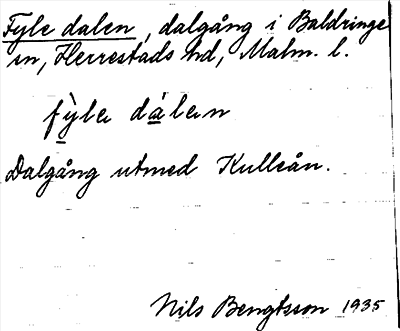 Fyle dalen, dalgång i Baldringe
sn, Herrestads hd, Malm. l.
fỳle dàlen
Dalgång utmed Kulleån.
Nils Bengtsson 1935